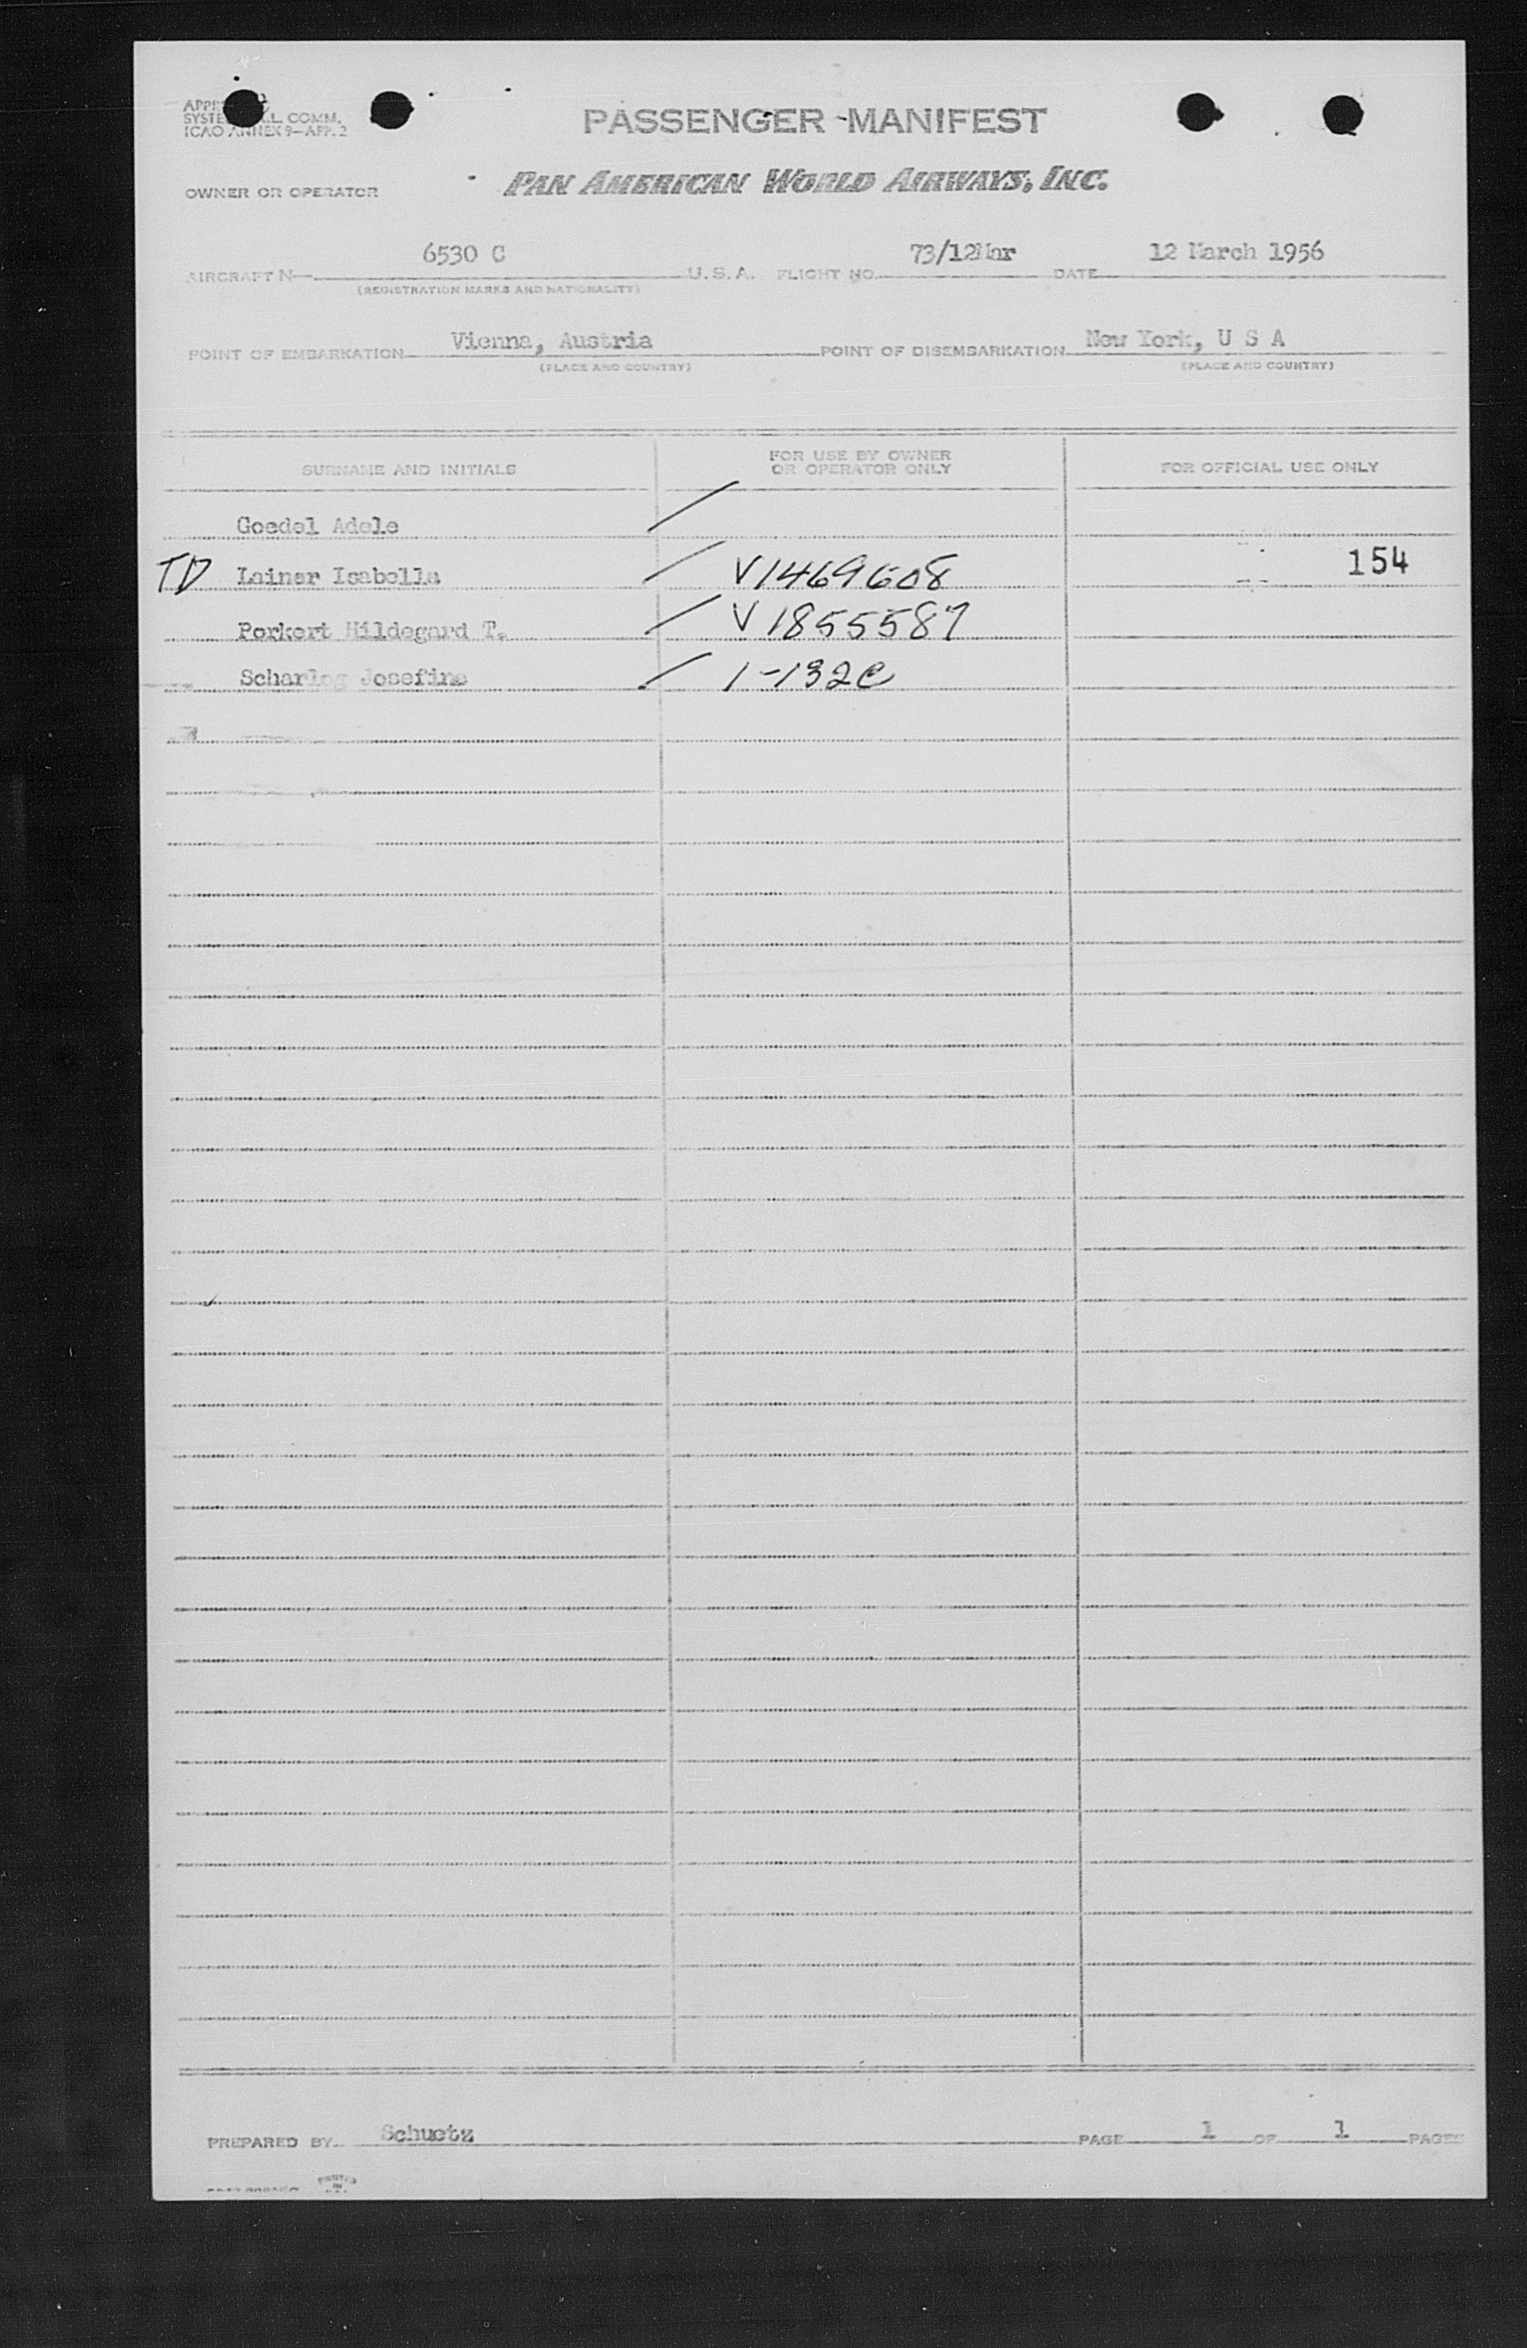 PASSENGER MANIFEST
SYSTE L. COMM.
ICAO ANNEX 9—APP. 2
OWNER OR OPERATOR PAN AMERICAN WORLD AIRWAYS, INC.
AIRCRAFT N— 6530 C U.S.A. FLIGHT NO. 73/12Mar DATE 12 March 1956
(REGISTRATION MARKS AND NATIONALITY)
POINT OF EMBARKATION Vienna, Austria POINT OF DISEMBARKATION New York, U S A
(PLACE AND COUNTRY) (PLACE AND COUNTRY)
SURNAME AND INITIALS FOR USE BY OWNER OR OPERATOR ONLY FOR OFFICIAL USE ONLY
Goedel Adele /
TD Lainer Isabella / V1469608 154
Porkert Hildegard T. / V1855587
Josefine / 1-132C
PREPARED BY Schuetz PAGE 1 OF 1 PAGES
PRINTED IN